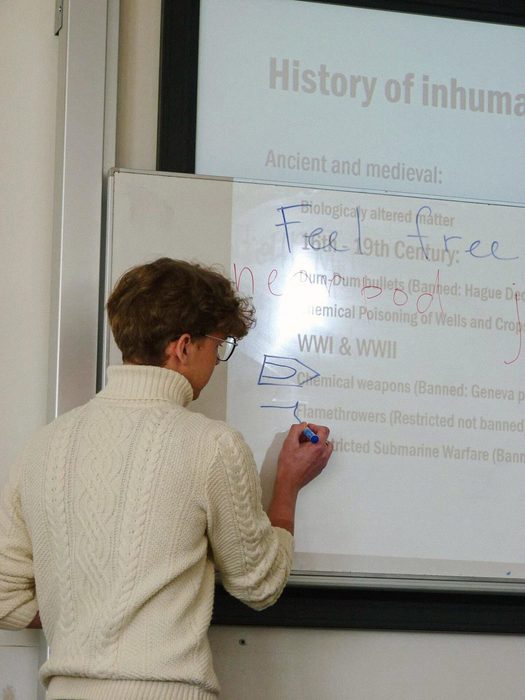 History of inhuma
Ancient and medieval:
Biologically altered matter
Feel free
19th Century:
Dum-Dum bullets (Banned: Hague Dec
Chemical Poisoning of Wells and Crop
WWI & WWII
Chemical weapons (Banned: Geneva p
Flamethrowers (Restricted not banned
tricted Submarine Warfare (Bann